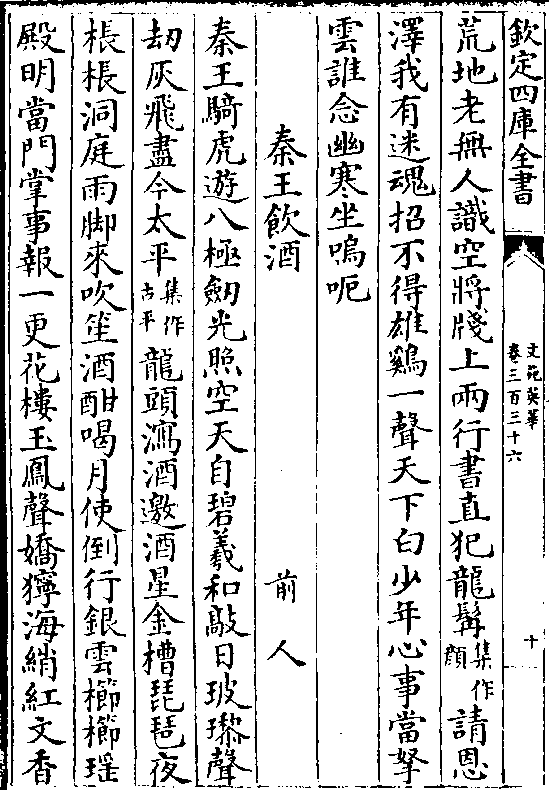 欽定四庫全書
文苑英華
卷三百三十六
十
荒地老無人識空將牋上兩行書直犯龍髯集作顏請恩
澤我有迷魂招不得雄鷄一聲天下白少年心事當拏
雲誰念幽寒坐嗚呃
秦王飲酒 前人
秦王騎虎遊八極劒光照空天自碧羲和敲日玻瓈聲
刼灰飛盡今太平集作古平龍頭瀉酒邀酒星金槽琵琶夜
棖棖洞庭雨脚來吹笙酒酣喝月使倒行銀雲櫛櫛瑶
殿明當門掌事報一更花樓玉鳳聲嬌獰海綃紅文香